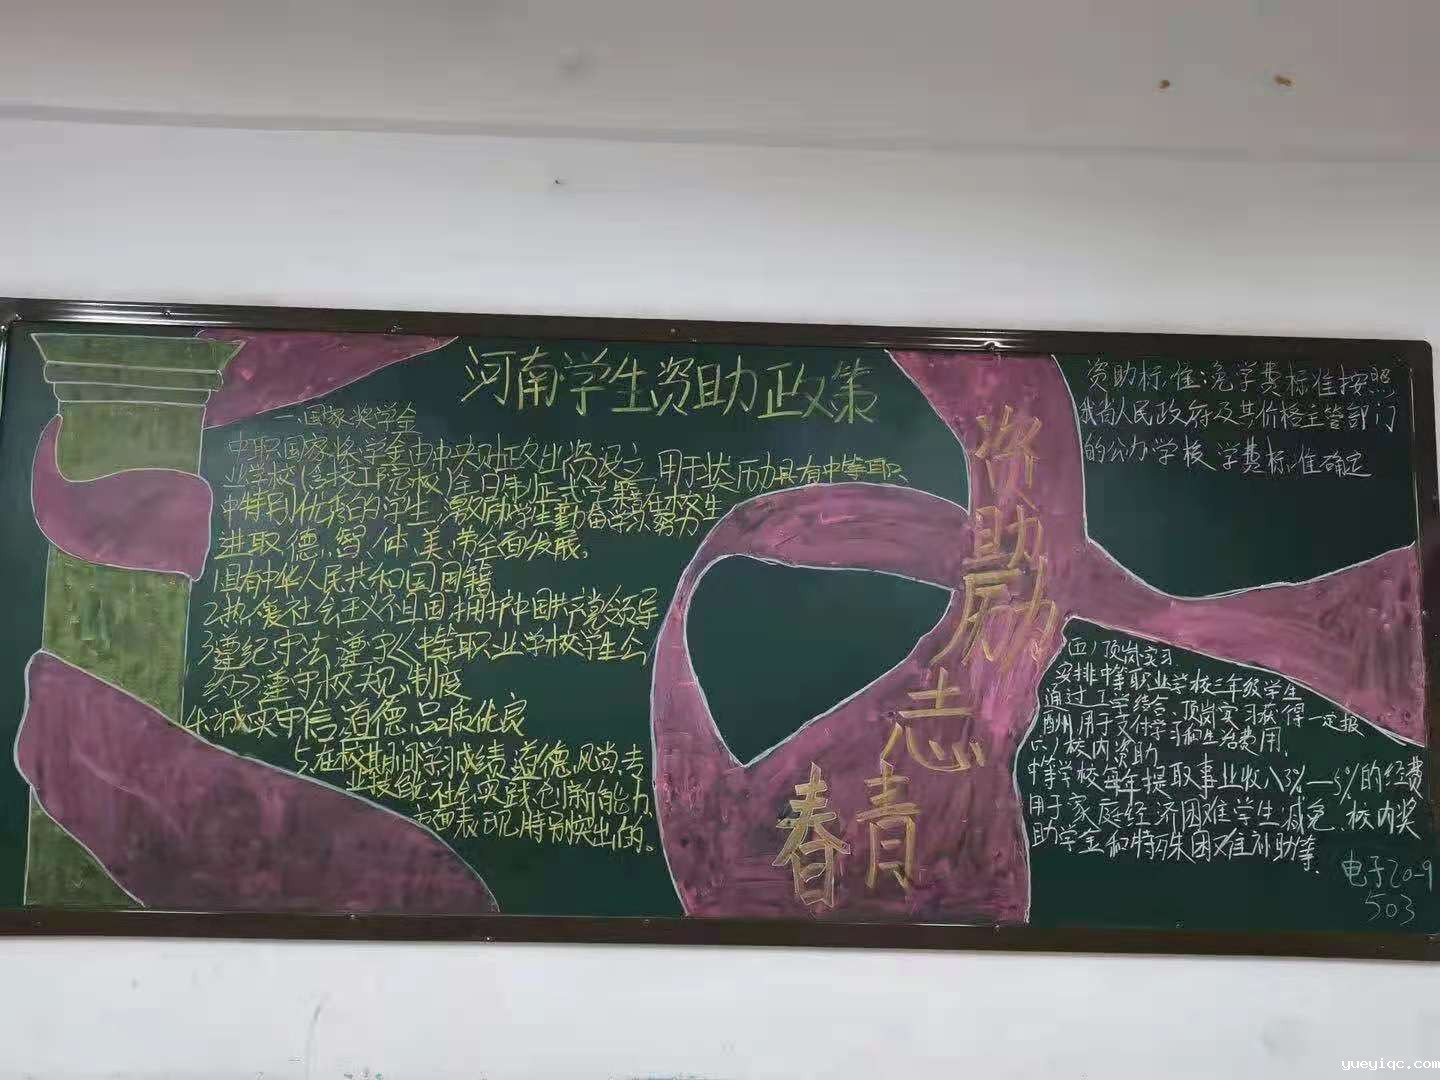 河南学生资助政策
一、国家奖学金
中职国家奖学金由中央财政出资设立,用于奖励具有中等职
业学校(含技工院校)全日制正式学籍在校生
中特别优秀的学生,激励学生勤奋学习、努力
进取,德、智、体、美、劳全面发展。
1.具有中华人民共和国国籍
2.热爱社会主义祖国,拥护中国共产党领导
3.遵纪守法,遵守《中等职业学校学生公
约》遵守校规制度
4.诚实守信,道德品质优良
5.在校期间学习成绩、道德风尚、专
业技能、社会实践、创新能力、
方面表现特别突出的。
资助励志
青春
资助标准:免学费标准按照
我省人民政府及其价格主管部门
的公办学校学费标准确定
(五)顶岗实习
安排中等职业学校三年级学生
通过工学结合、顶岗实习获得一定报
酬,用于支付学习和生活费用.
六)校内资助
中等学校每年提取事业收入3%—5%的经费
用于家庭经济困难学生减免、校内奖
助学金和特殊困难补助等.
电子20-9
503
yueyiqc.com